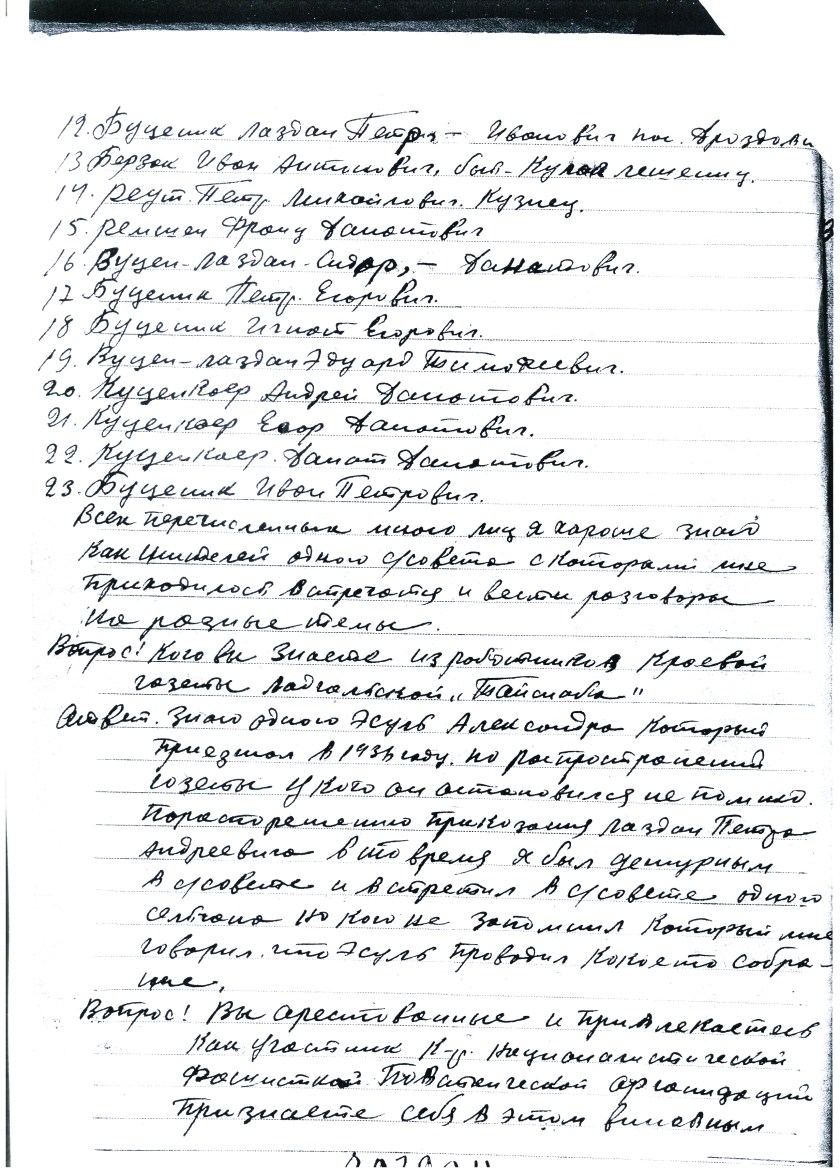 12. Буценик Лаздан Петр, – Иванович пос. Дроздови
13 Берзок Иван Антинович, был Кулак лешениц.
14. Реут. Петр. Михайлович. Кузнец.
15. Ремшен Франц Данатович
16. Вуцен-Лаздан-Сидор, – Данатович.
17 Буценик Петр. Егорович.
18 Буценик Игнат Егорович.
19. Вуцен-Лаздан Эдуард Тимофеевич.
20. Куценкаер Андрей Данатович.
21. Куценкаер Егор Данатович.
22. Куценкаер. Данат Данатович.
23. Буценик Иван Петрович.
Всех перечисленных мною лиц я хароше знаю
как жителей одного с/совета с которами мне
приходилось встречатся и вести разговоры
на разные темы.
Вопрос! Кого вы знаете из работников краевой
газеты Ладгальской „Тайснаба"
Ответ. Знаю одного Эсуль Александра который
приезжал в 1936 году. по распространений
газеты у кого он остановился не помню.
По расторешению приказания Лаздан Петра
Андреевича в то время я был дежурным
в с/совете и встретил в с/совете одного
селчана но кого не запомнил который мне
говорил. что Эсуль проводил какое то собра-
ние.
Вопрос! Вы арестованные и привлекаетесь
как участник К-р. националистической
фашисткой повстанческой арганизаций
признаете себя в этом виновным